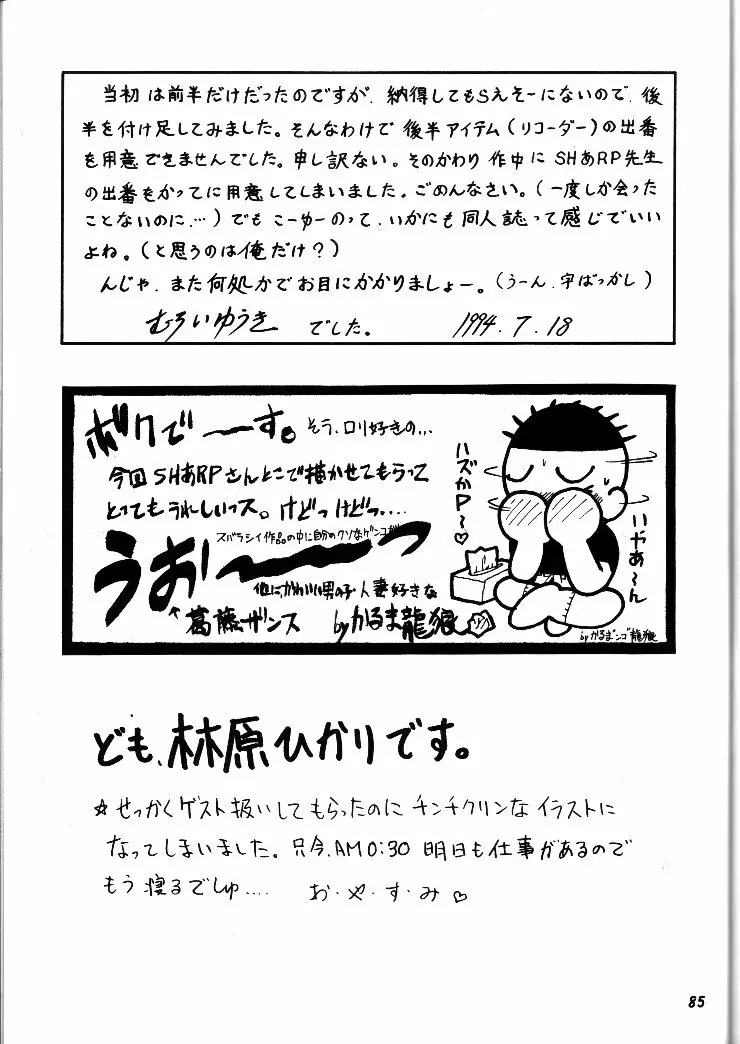 当初は前半だけだったのですが、納得してもらえそーにないので、後
半を付け足してみました。そんなわけで後半アイテム(リコーダー)の出番
を用意できませんでした。申し訳ない。そのかわり作中にSHあRP先生
の出番をかってに用意してしまいました。ごめんなさい。(一度しか会った
ことないのに…)でもこーゆーのって、いかにも同人誌って感じでいい
よね。(と思うのは俺だけ?)
んじゃ、また何処かでお目にかかりましょー。(うーん、字ばっかし)
むろいゆうき でした。 1994.7.18
ボクで〜〜す。そう、ロリ好きの…
今回SHあRPさんとこで描かせてもらって
とってもうれしいっス。けどっけどっ……
スバラシイ作品の中に自分のクソなゲンコが
うお〜〜〜っ
他にかわいい男の子・人妻好きな
↖葛藤ザンス by かるま龍狼
ハズかP〜♡
いやあ〜ん
by かるまンゴ龍狼
ども、林原ひかりです。
☆せっかくゲスト扱いしてもらったのにチンチクリンなイラストに
なってしまいました。只今、AM0:30 明日も仕事があるので
もう寝るでしゅ…. お・や・す・み♡
85